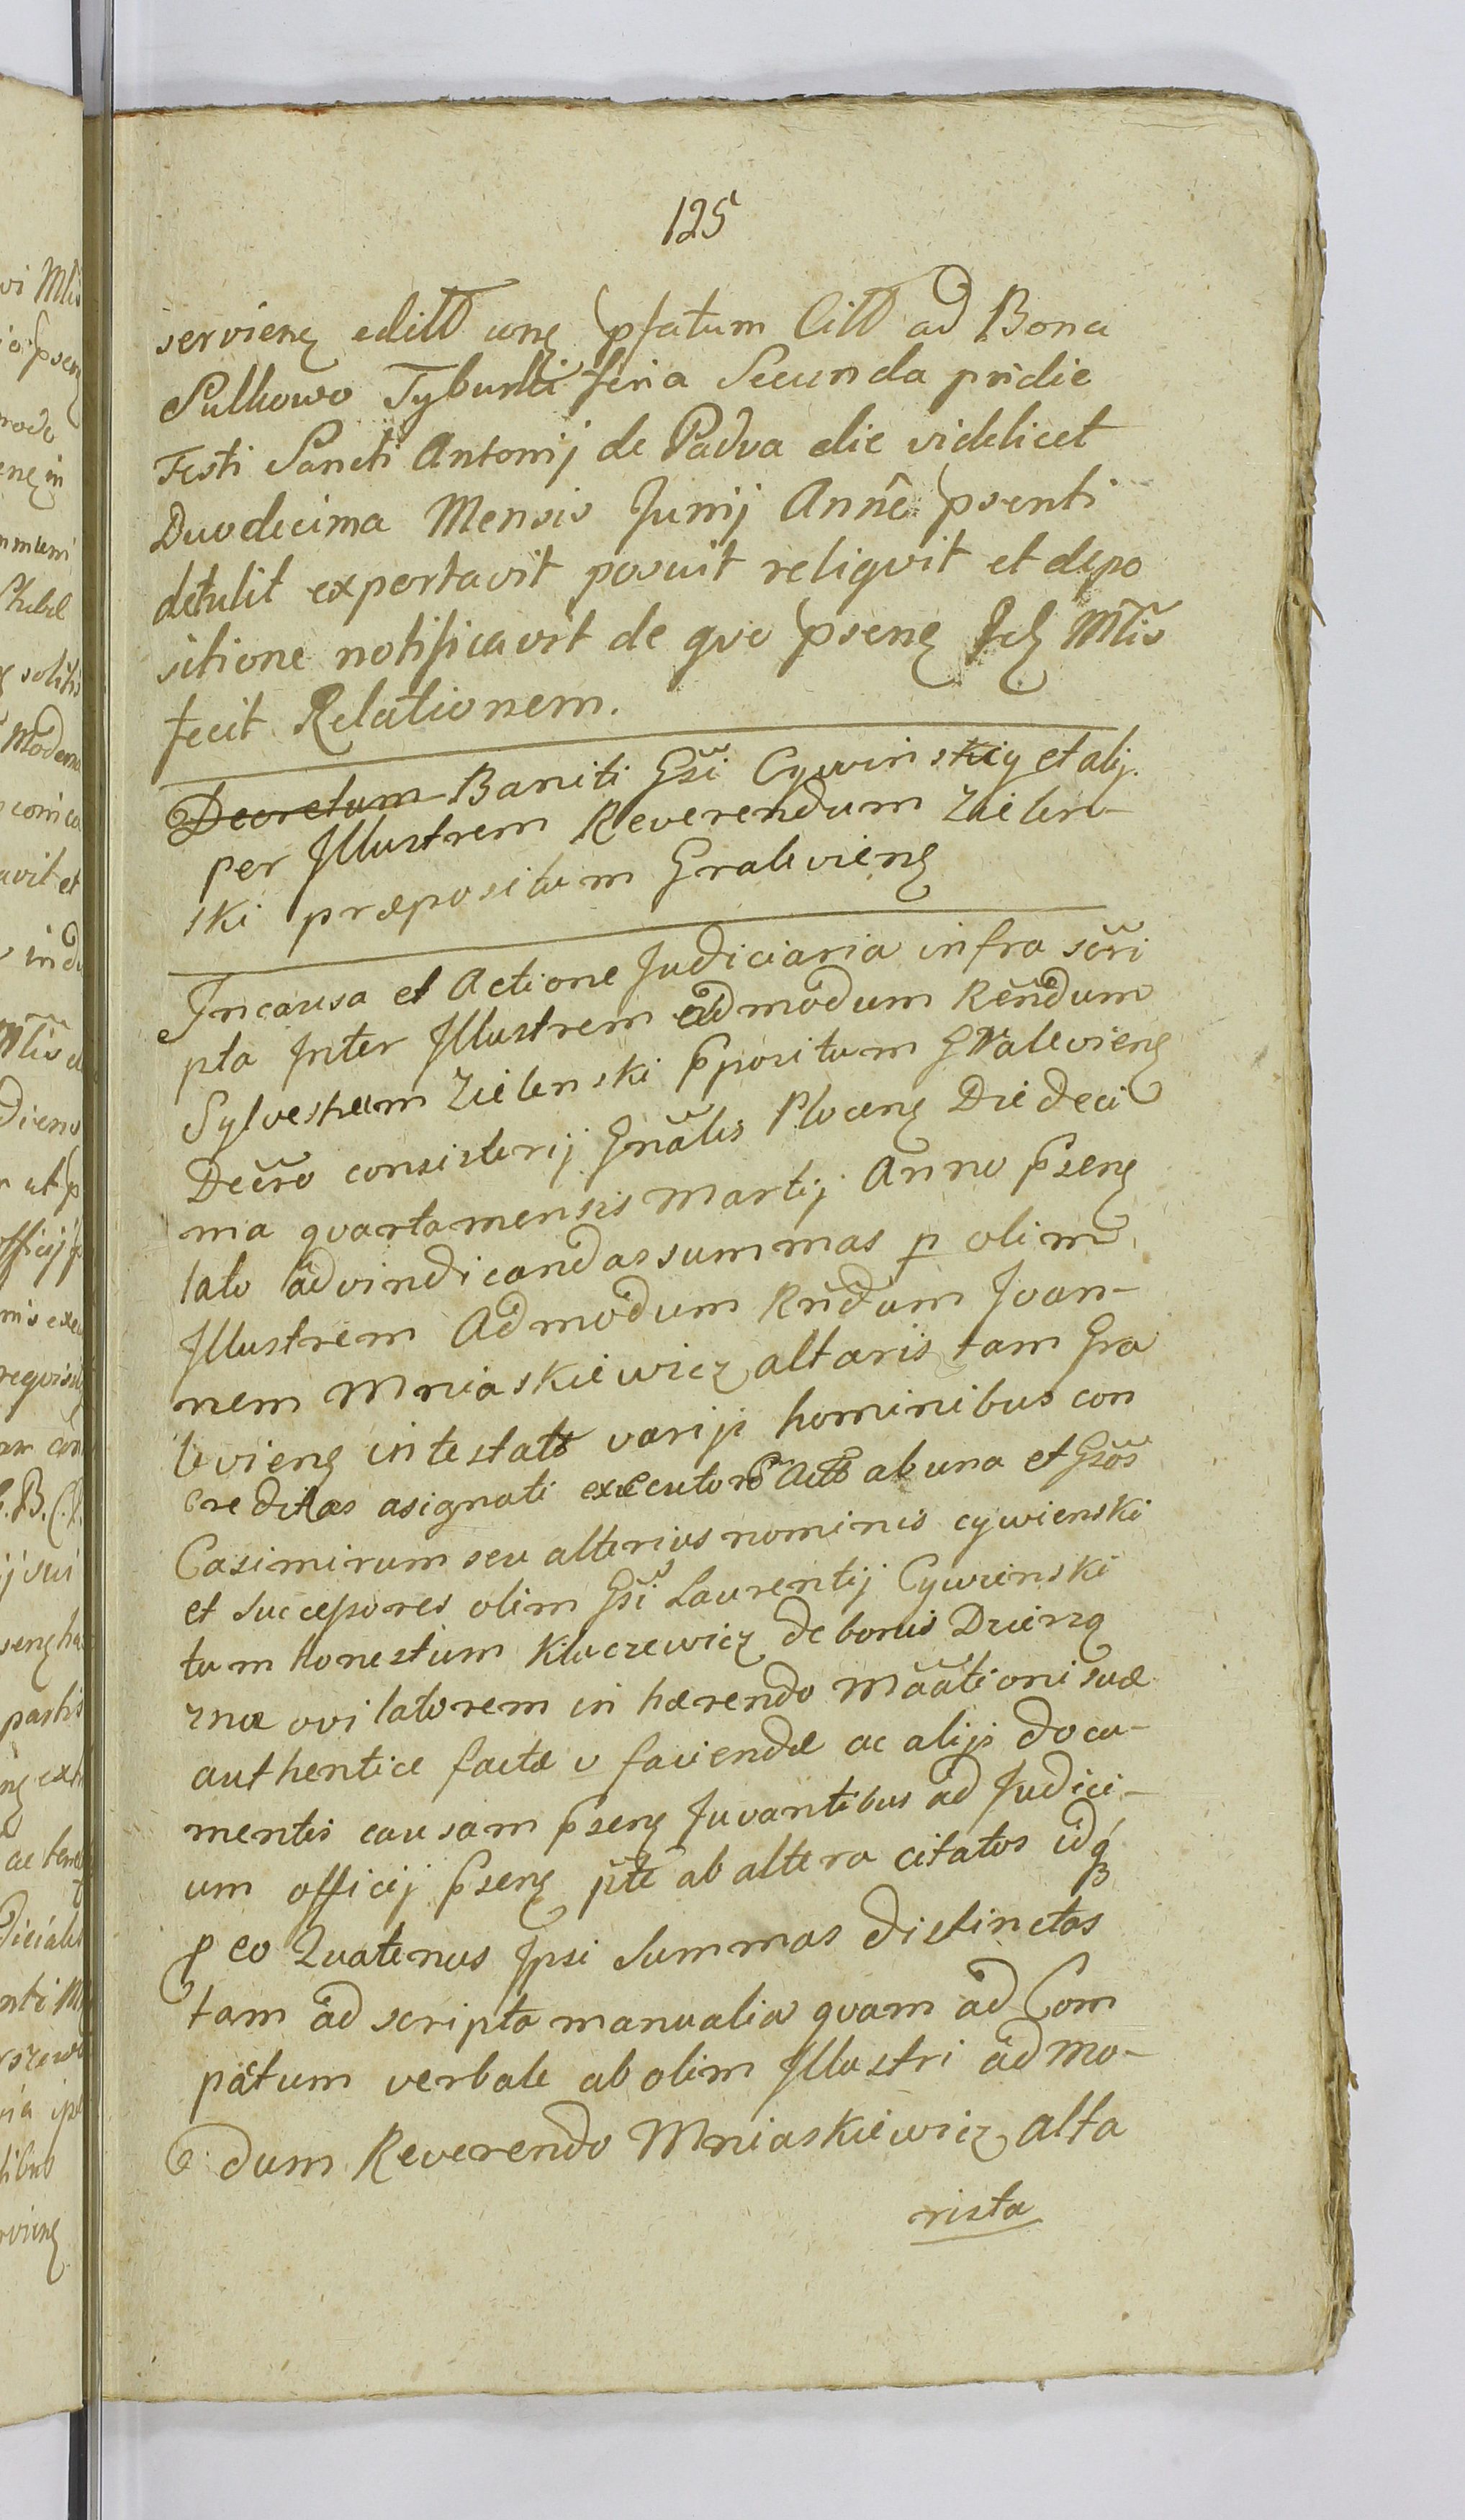 125
servienȩ editt conȩ pfatum Citt ad Bona
Sulkowo Tyburti feria Secunda pridie
Festi Sancti Antonij de Padva die videlicet
Duodecima Mensis Junij Annẽ psenti
detulit exportavit posuit reliqvit et depo
sitione notificavit de qvo psenȩ Mtĩs
fecit Relationem.
Decretum Baniti Gsĩ Cywinskiy et alij.
per Illustrem Reverendum Zielen-
ski præpositum Gralevienȩ
In causa et Actione Judiciaria infra scri
pta Inter Illustrem admodum Rendum
Sylvestrum Zielenski p̃positum Gralevienȩ
Decr̃o consistorij Gnãlis Plocenȩ Die deci
ma qvarta mensis Martij Anno p̃senȩ
lato ad vindicandas summas p olim
Illustrem Admodum Rndum Joan-
nem Mniaskiewicz altaris tam Gra
levienȩ intestato varijs hominibus con
creditas asignati executorẽ Actt ab una et Gsõs
Casimirum seu alterius nominis cywienski
et successores olim Gsĩ Laurentij Cywienski
tum Honestum Kluczewicz de bonis Drierzą
znæ ovilatorem in hærendo Mããtioni suæ
authentice factæ v faciendæ ac alijs docu-
mentis causam p̃senȩ Juvantibus ad Judici-
um officij p̃senȩ ptẽ ab altera citatos idq3
p eo Quatenus Ipsi Summas distinctas
tam ad scripta manualia qvam ad Com
patum verbale ab olim Illustri admo-
dum Reverendo Mniaskiewicz alta
rista